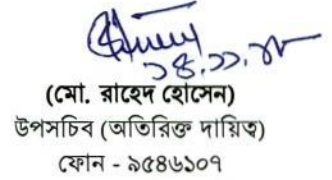 ১৪.১১.১৮
(মো. রাহেদ হোসেন)
উপসচিব (অতিরিক্ত দায়িত্ব)
ফোন - ৯৫৪৬১০৭